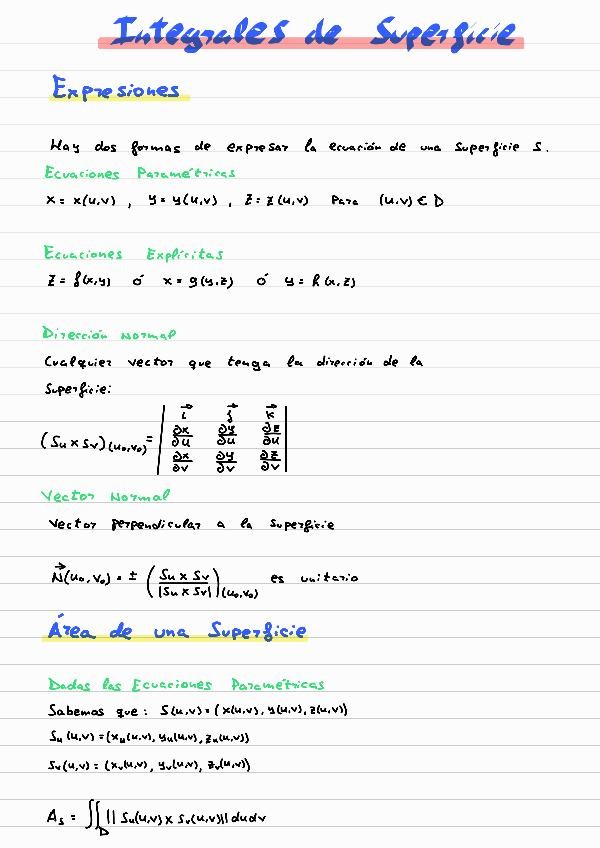 Integrales de Superficie
Expresiones
Hay dos formas de expresar la ecuación de una superficie S.
Ecuaciones Paramétricas
x = x(u,v) , y = y(u,v) , z = z(u,v) Para (u,v) ∈ D
Ecuaciones Explícitas
z = f(x,y) ó x = g(y,z) ó y = h(x,z)
Dirección Normal
Cualquier vector que tenga la dirección de la
Superficie:
(Su x Sv)(u₀,v₀) = | i⃗ j⃗ k⃗ |
| ∂x/∂u ∂y/∂u ∂z/∂u |
| ∂x/∂v ∂y/∂v ∂z/∂v |
Vector Normal
Vector perpendicular a la superficie
N⃗(u₀,v₀) = ± (Su x Sv / |Su x Sv|)(u₀,v₀) es unitario
Área de una Superficie
Dadas las Ecuaciones Paramétricas
Sabemos que: S(u,v) = (x(u,v), y(u,v), z(u,v))
Su(u,v) = (xu(u,v), yu(u,v), zu(u,v))
Sv(u,v) = (xv(u,v), yv(u,v), zv(u,v))
As = ∬D ||Su(u,v) x Sv(u,v)|| du dv